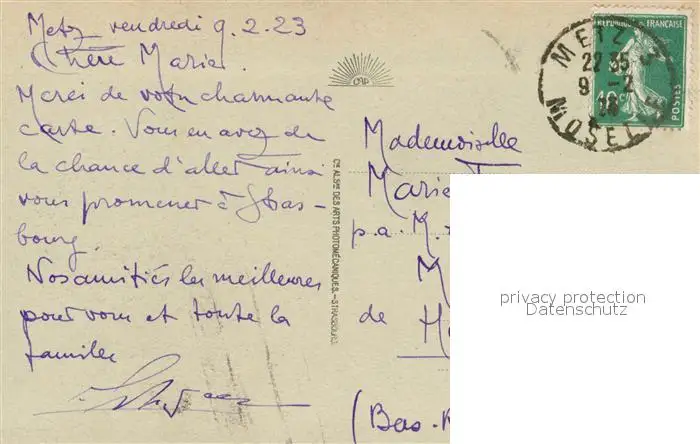 Metz vendredi 9.2.23
Chère Marie
Merci de votre charmante
carte. Vous en avez de
la chance d'aller ainsi
vous promener à Stras-
bourg.
Nos amitiés les meilleures
pour vous et toute la
famille
CAP
Cie ALSne DES ARTS PHOTOMÉCANIQUES.-STRASBOURG
REPUBLIQUE FRANÇAISE
10c
POSTES
METZ
22 35
9 -2
MOSELLE
Mademoiselle
Marie
p.a. M.
de
(Bas-
privacy protection
Datenschutz